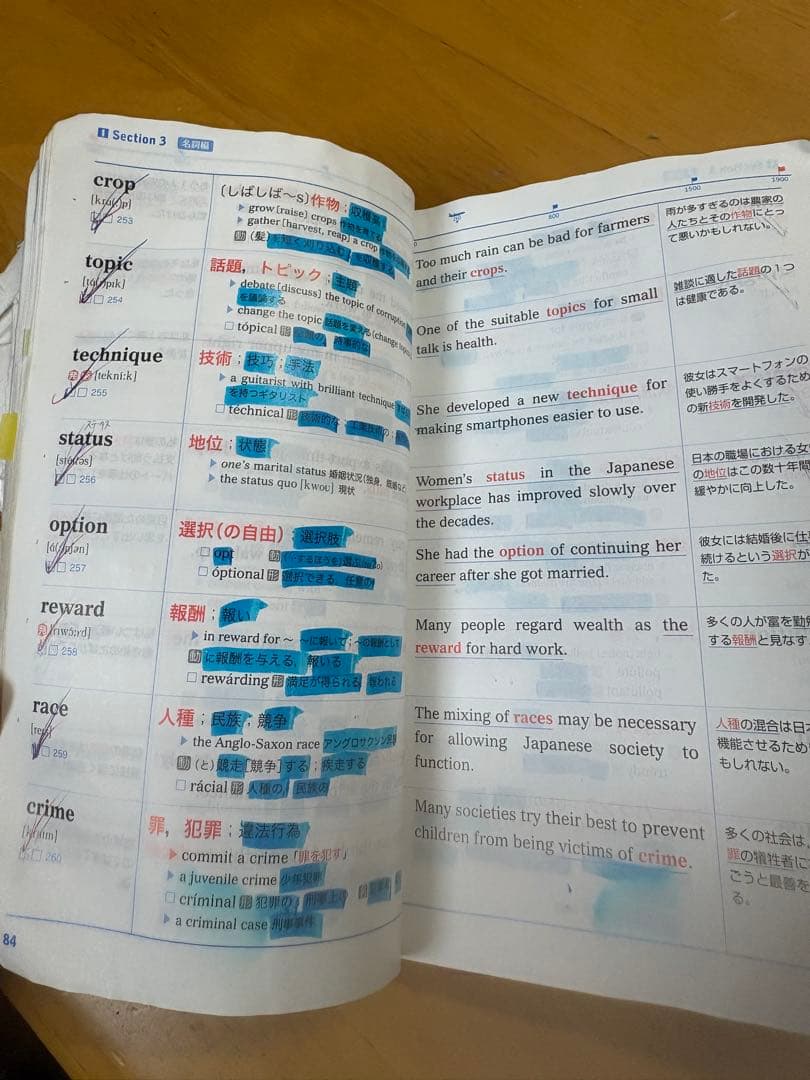 1 Section 3 名詞編
crop
253
(しばしば~s)作物；収穫高
▶ grow [raise] crops 作物を育てる
▶ gather [harvest, reap] a crop
動 (髪)を短く刈り込む；を収穫する
topic
254
話題，トピック；主題
▶ debate [discuss] the topic of corruption
を議論する
▶ change the topic 話題を変える(change topics
□ tópical 形 話題の，時事的な
technique
発 ア [tekníːk]
255
技術；技巧；手法
▶ a guitarist with brilliant technique
を持つギタリスト
□ téchnical 形 技術的な；工業技術の；
ステイタス
status
256
地位；状態
▶ one's marital status 婚姻状況(独身，既婚など
▶ the status quo [kwoʊ] 現状
option
257
選択(の自由)；選択肢
□ opt 動
□ óptional 形 選択できる，任意の
reward
258
報酬；報い
▶ in reward for ~ ~に報いて；~の報酬として
動 に報酬を与える，報いる
□ rewárding 形 満足が得られる，報われる
race
259
人種；民族；競争
▶ the Anglo-Saxon race アングロサクソン民族
動 (と)競走[競争]する；疾走する
□ rácial 形 人種の，民族の
crime
260
罪，犯罪；違法行為
▶ commit a crime「罪を犯す」
▶ a juvenile crime 少年犯罪
□ críminal 形 犯罪の，刑事上の
▶ a criminal case 刑事事件
84
0
800
1500
1900
Too much rain can be bad for farmers
and their crops.
雨が多すぎるのは農家の
人たちとその作物にとっ
て悪いかもしれない。
One of the suitable topics for small
talk is health.
雑談に適した話題の1つ
は健康である。
She developed a new technique for
making smartphones easier to use.
彼女はスマートフォンの
使い勝手をよくするため
の新技術を開発した。
Women's status in the Japanese
workplace has improved slowly over
the decades.
日本の職場における女
の地位はこの数十年間
緩やかに向上した。
She had the option of continuing her
career after she got married.
彼女には結婚後に仕
続けるという選択が
た。
Many people regard wealth as the
reward for hard work.
多くの人が富を勤勉
する報酬と見なす
The mixing of races may be necessary
for allowing Japanese society to
function.
人種の混合は日本
機能させるため
もしれない。
Many societies try their best to prevent
children from being victims of crime.
多くの社会は、
罪の犠牲者に
ごうと最善を
る。